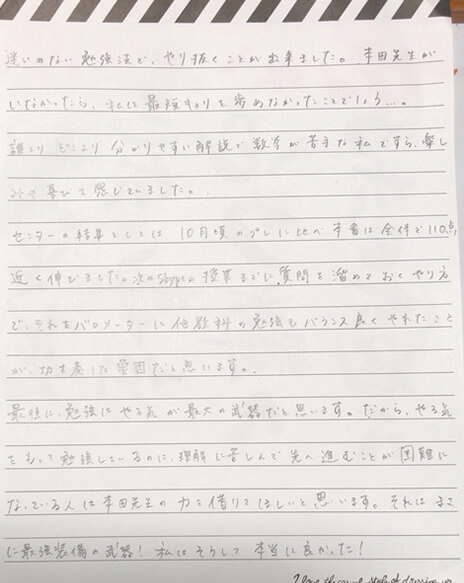 迷いのない勉強法で、やり抜くことが出来ました。本田先生が
いなかったら、私は最短キョリを歩めなかったことでしょう…。
誰より どこより 分かりやすい解説で数学が苦手な私ですら、楽し
さや喜びを感じていました。
センターの結果としては 10月頃のプレに比べ 本番は全体で110点
近く伸びました。次のSkypeの授業までに、質問を溜めておくやり方
で、それをバロメーターに他教科の勉強もバランス良くやれたこと
が、功を奏した要因だと思います。
最後に、勉強はやる気が最大の武器だと思います。だから、やる気
をもって勉強しているのに、理解に苦しんで先へ進むことが困難に
なっている人は本田先生の力を借りてほしいと思います。それはまさ
に最強装備の武器！私はそうして本当に良かった！
I love the casual style of dressing up